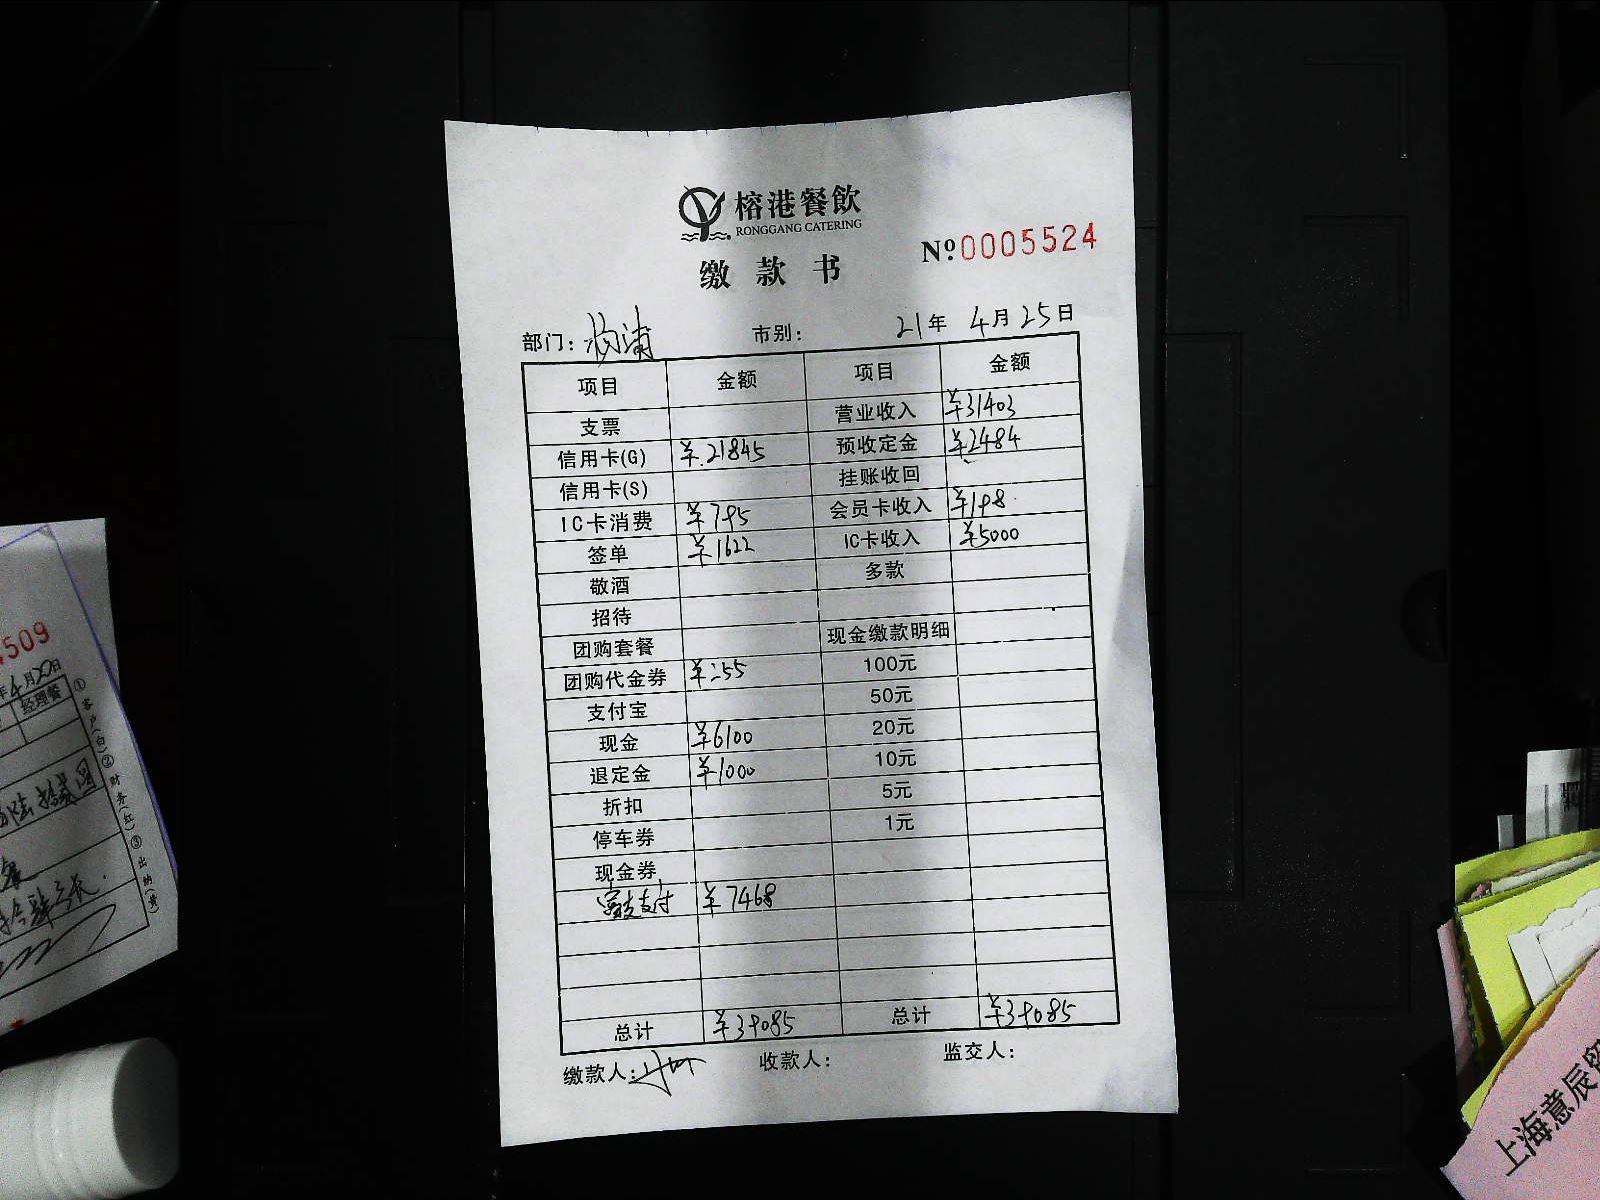 榕港餐飲
RONGGANG CATERING
缴款书
Nº 0005524
部门: 杨浦 市别: 21年 4月25日
项目 金额 项目 金额
支票 营业收入 ¥31403
信用卡(G) ¥21845 预收定金 ¥2484
信用卡(S) 挂账收回
IC卡消费 ¥795 会员卡收入 ¥198
签单 ¥1622 IC卡收入 ¥5000
敬酒 多款
招待
团购套餐 现金缴款明细
团购代金券 ¥255 100元
支付宝 50元
现金 ¥6100 20元
退定金 ¥1000 10元
折扣 5元
停车券 1元
现金券
支付 ¥7468
总计 ¥39085 总计 ¥39085
缴款人: 收款人: 监交人:
509
年4月20日
经理餐
①客户(白)②财务(红)③出纳(黄)
上海意辰